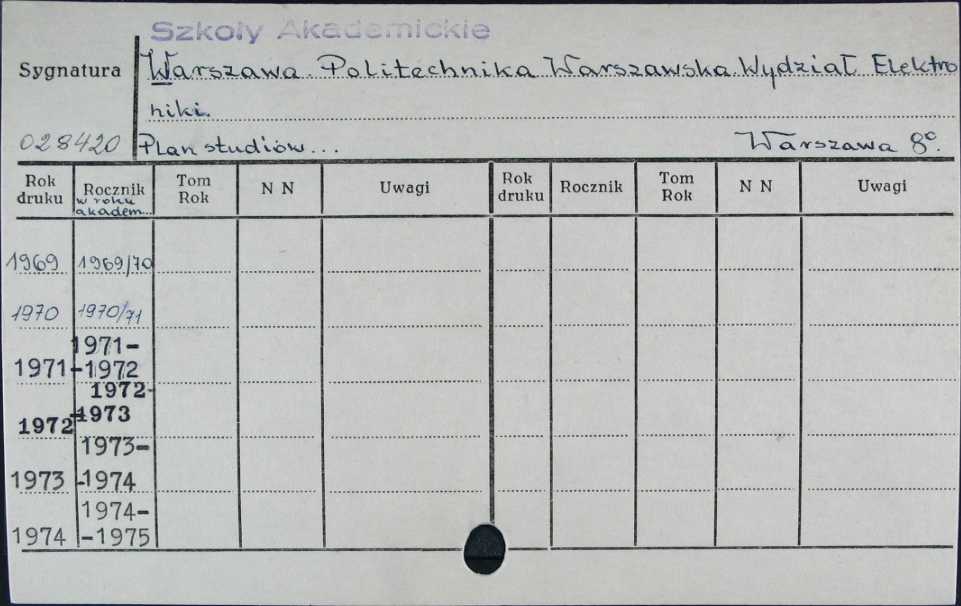 Szkoły Akademickie
Sygnatura
Warszawa. Politechnika Warszawska. Wydział Elektro
niki.
028420
Plan studiów...
Warszawa 8°.
Rok druku
Rocznik w roku akadem...
Tom Rok
N N
Uwagi
Rok druku
Rocznik
Tom Rok
N N
Uwagi
1969 1969/70
1970 1970/71
1971-
1971 -1972
1972-
1972 -1973
1973-
1973 -1974
1974-
1974 -1975